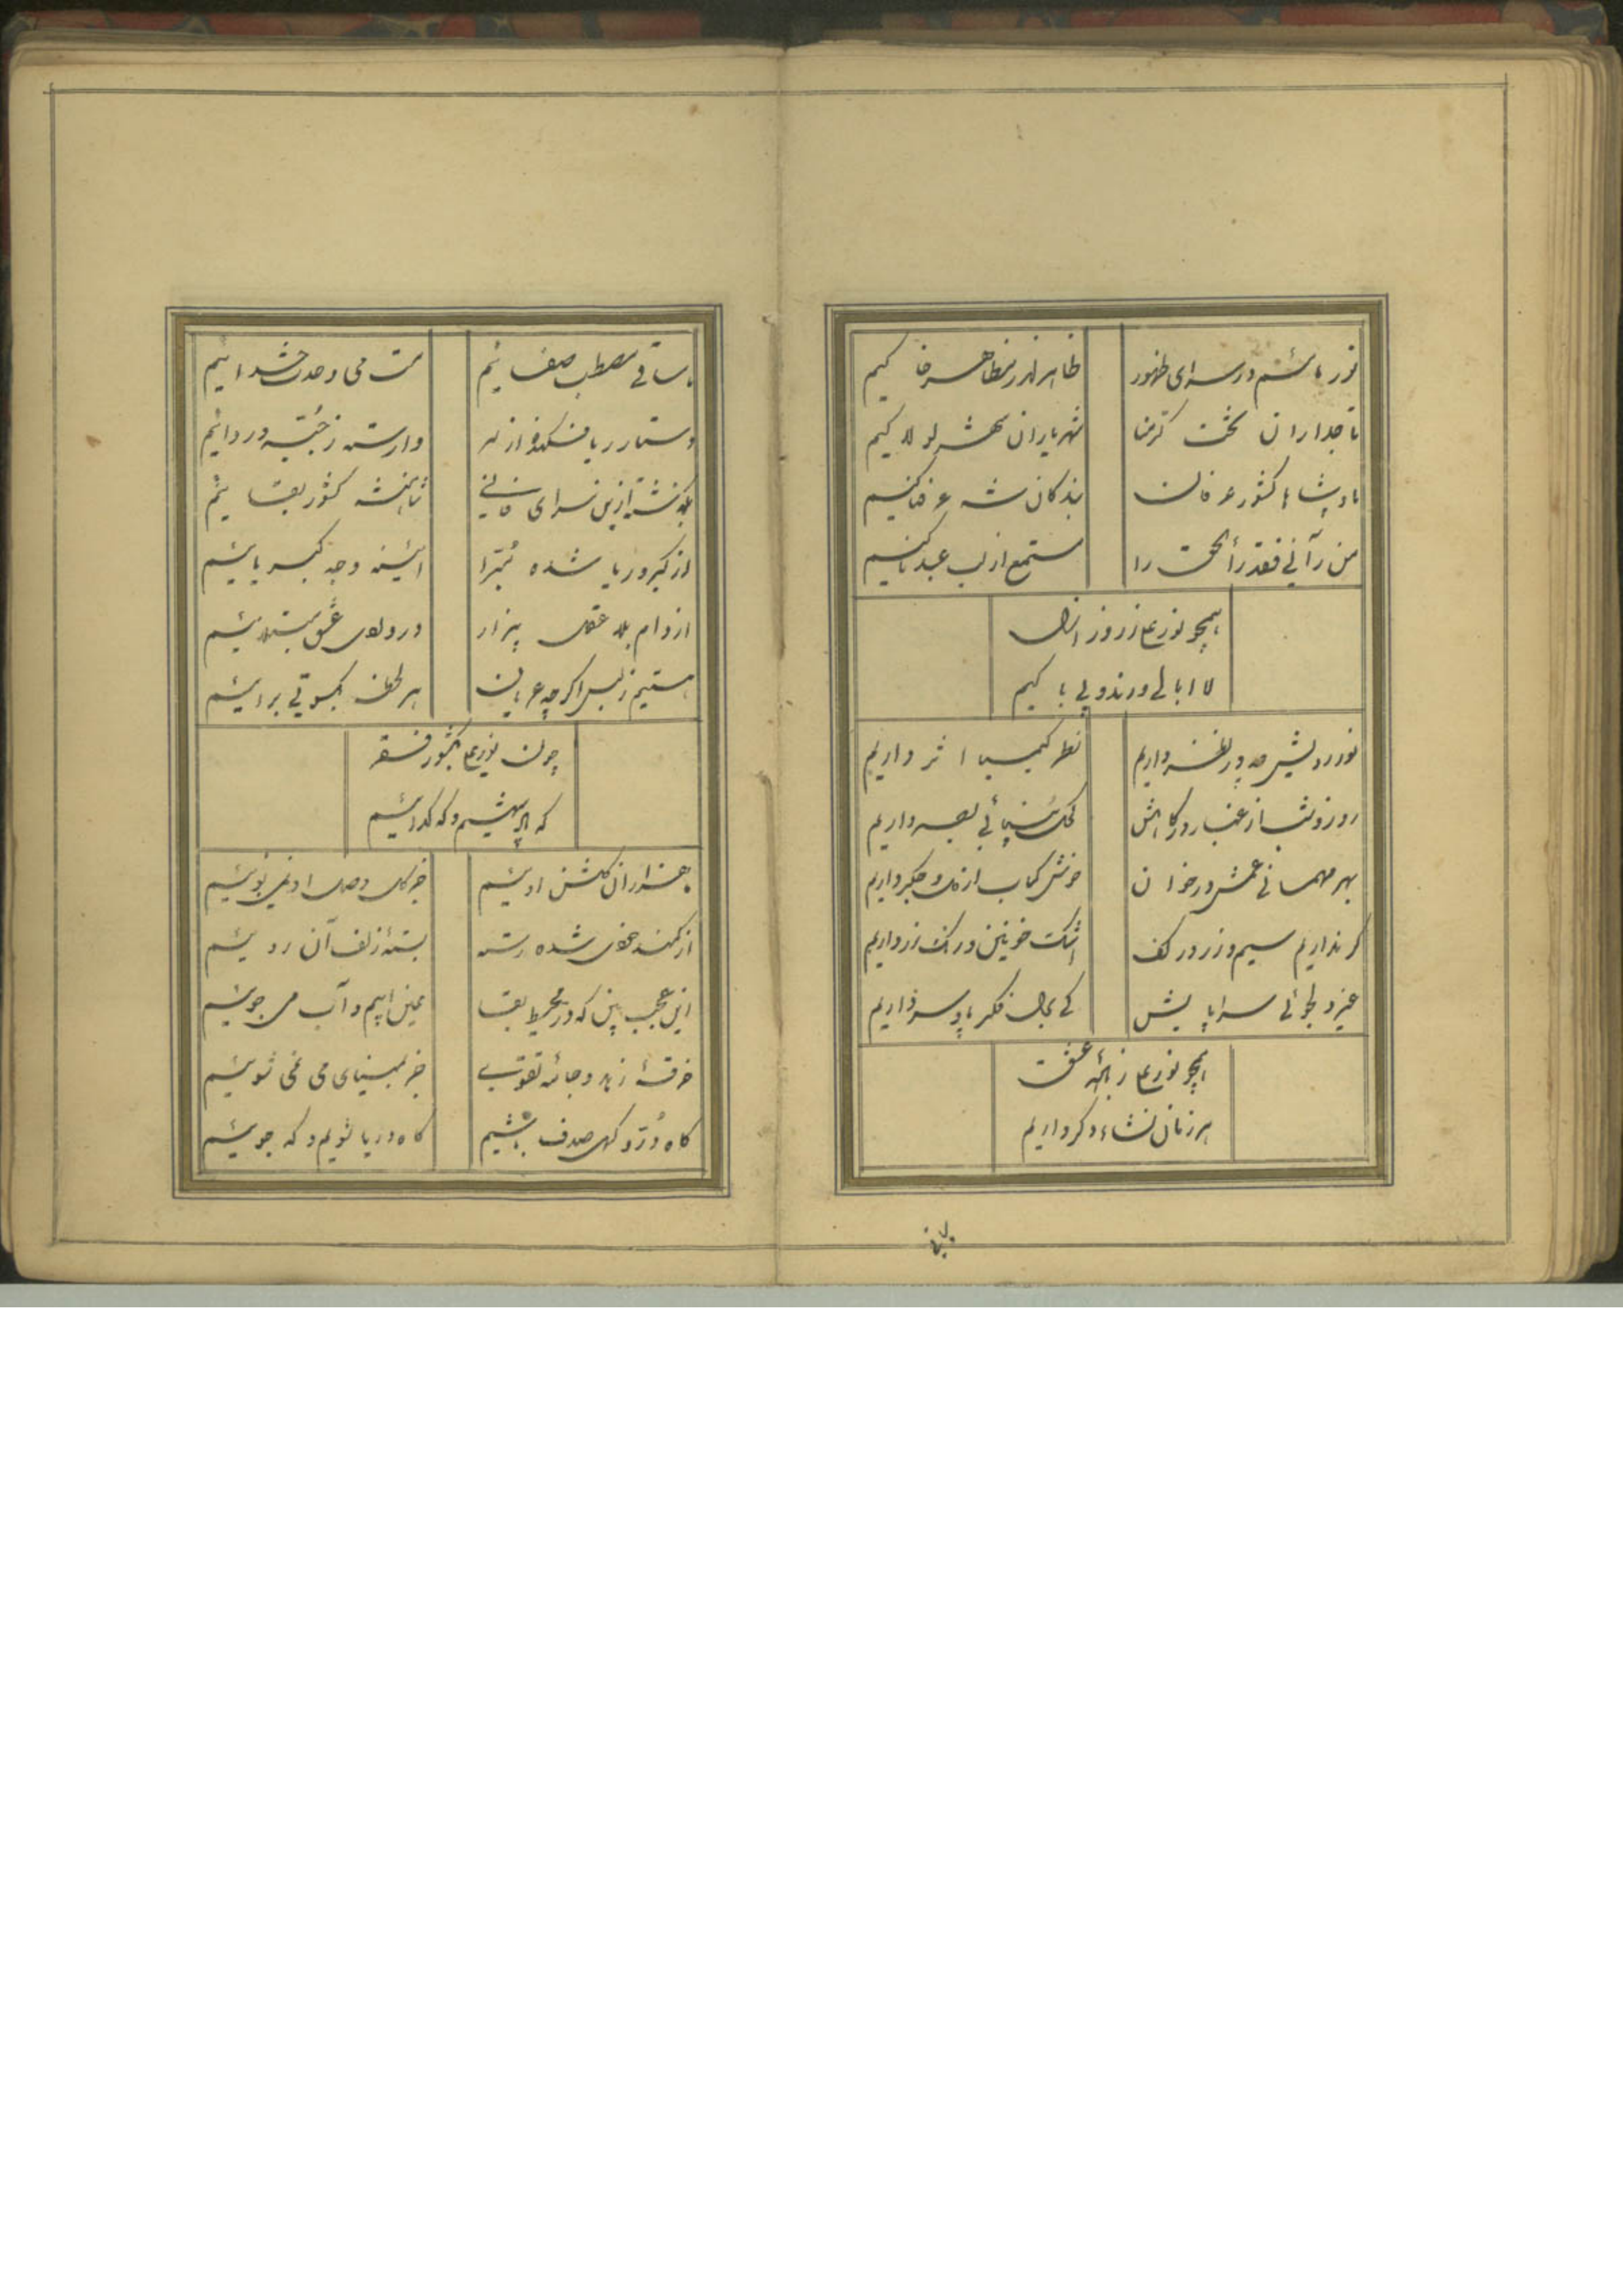 نور پاکیم در سرای ظهور
ظاهر اندر مظاهر خاکیم
تاجداران تخت کرمنا
شهریاران شهر لولاکیم
پادشاها کشور عرفان
بندگان شه عرفناکیم
من رآنی فقد رأ الحق را
مستمع از لب عبدناکیم
همچو نور علی ز روز ازل
لا ابالی و رند و بی باکیم
نور رویش چه در نظر داریم
نظر کیمیا اثر داریم
روز و شب از غبار درگاهش
کحل بینائی بصر داریم
بهر مهمانی غمش در خوان
خوش کباب از دل و جگر داریم
گر نداریم سیم و زر در کف
اشک خونین و رنگ زر داریم
غیر دلجوئی سراپایش
کی بدل فکر پا و سر داریم
همچو نور علی ز باده عشق
هر زمان نشاء دگر داریم
ما ساقی مصطب صفائیم
مست می وحدت خدائیم
دستار ریا فکنده از سر
وارسته ز جبه و ردائیم
بگذشته ازین سرای فانی
شاهنشه کشور بقائیم
از کبر و ریا شده مبرا
آئینه وجه کبریائیم
از دام بلا عقل بیزار
در ولای عشق مبتلائیم
هستیم ز لبس اگر چه عریان
هر لحظه بکسوتی برائیم
چون نور علی بکشور فقر
که پادشهیم و که گدائیم
ما هزاران گلشن اوئیم
جز گل وصل او نمی بوئیم
از کمند خودی شده رسته
بسته زلف آن رویئیم
این عجب بین که در محیط بقا
عین آبیم و آب می جوئیم
خرقه زهد و جامه تقوی
جز بمینای می نمی شوئیم
گاه در و گهی صدف باشیم
گاه دریا شویم و که جوئیم